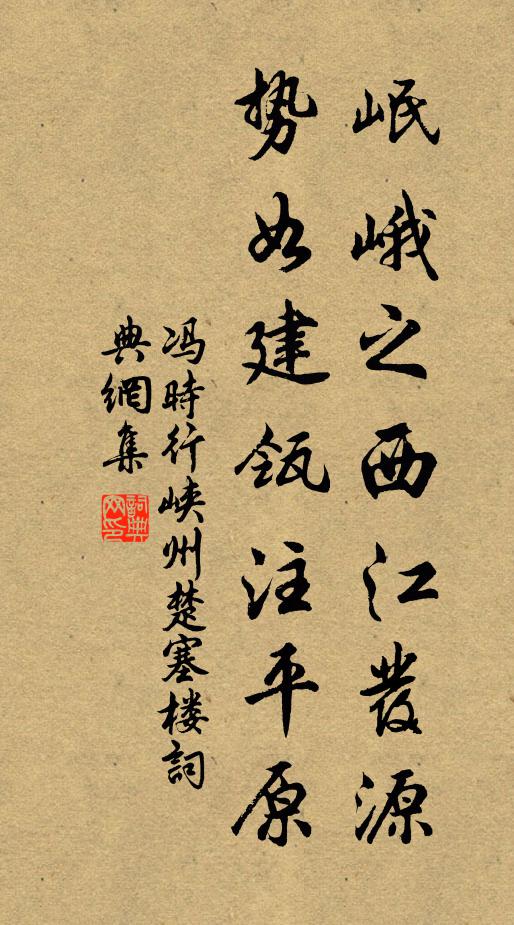 岷峨之西江發源
勢如建瓴注平原
冯時行峡州楚塞楼詞
典網集
詞典
网印